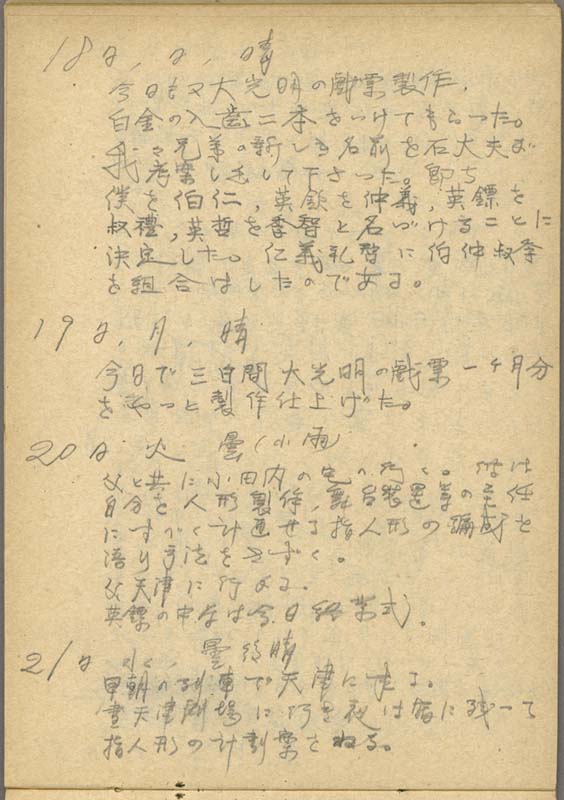 18日,日,晴
今日も又大光明の戯票製作,
白金の入歯二本をいけてもらった。
我々兄弟の新しき名前を石大夫が
考案し毛して下さった。即ち
僕を伯仁,英欽を仲義,英鏢を
叔禮,英哲を季智と名づけることに
決定した。仁義礼智に伯仲叔季
を組合はしたのである。
19日,月,晴
今日で三日間大光明の戯票一ヶ月分
をやっと製作仕上げた。
20日 火 曇(小雨)
父と共に小田内の宅へ行く。彼は
自分を人形製作,舞台装置等の主任
にすべく計画せる指人形の
語り手法をさずく。
父天津に行かる。
英鏢の中学は今日終業式。
21日 水, 曇後晴
早朝の列車で天津に走る。
昼天津劇場に行き夜は宿に残って
指人形の計劃案をねる。